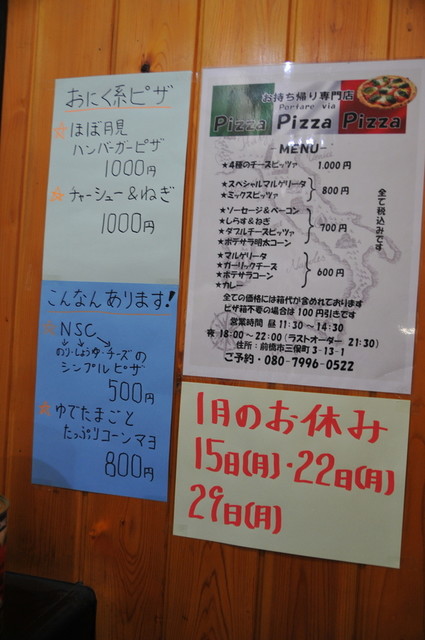 おにく系ピザ
☆ほぼ月見
ハンバーガーピザ
1000円
☆チャーシュー&ねぎ
1000円
こんなんあります!
☆NSC
のり・しょうゆ・チーズの
シンプルピザ
500円
☆ゆでたまごと
たっぷりコーンマヨ
800円
お持ち帰り専門店
Portare via
Pizza Pizza Pizza
-MENU-
★4種のチーズピッツァ 1.000円
★スペシャルマルゲリータ
★ミックスピッツァ
800円
★ソーセージ&ベーコン
★しらす&ねぎ
★ダブルチーズピッツァ
★ポテサラ明太コーン
700円
★マルゲリータ
★ガーリックチーズ
★ポテサラコーン
★カレー
600円
全て税込みです
全ての価格には箱代が含めれております
ピザ箱不要の場合は100円引きです
営業時間 昼 11:30~14:30
夜 18:00~22:00(ラストオーダー 21:30)
住所:前橋市三俣町3-13-1
ご予約・080-7996-0522
1月のお休み
15日(月)・22日(月)
29日(月)